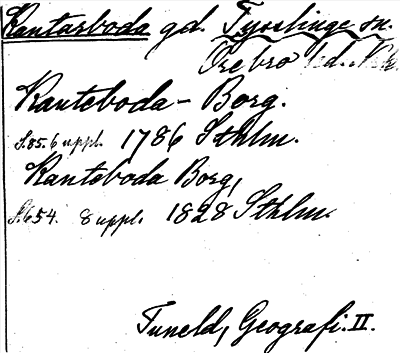 Kantarboda gd. Tysslinge sn.
Örebro hd. Nke
Kanteboda - Borg.
S. 85. 6 uppl. 1786 Sthlm.
Kanteboda Borg,
S. 654. 8 uppl. 1828 Sthlm.
Tuneld, Geografi. II.